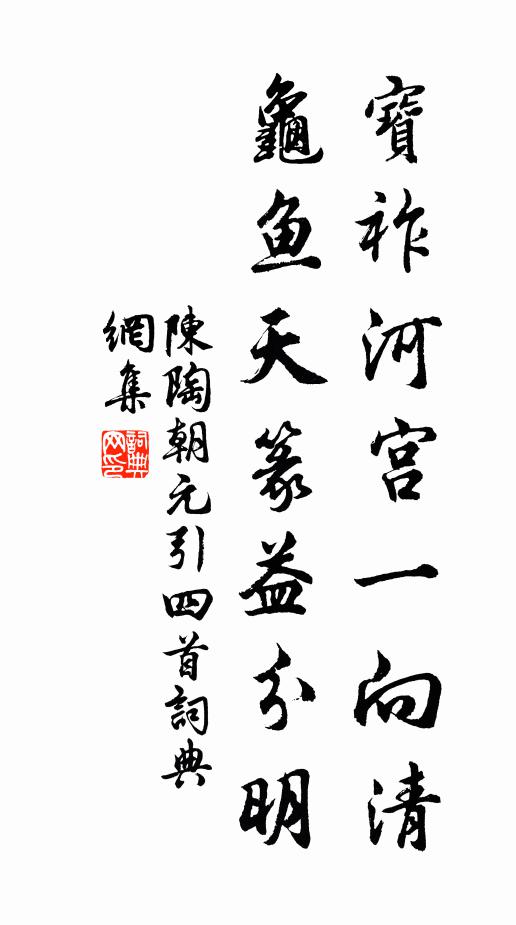 寶祚河宮一向清
龜魚天篆益分明
陳陶朝元引四首詞典
網集
詞典網印